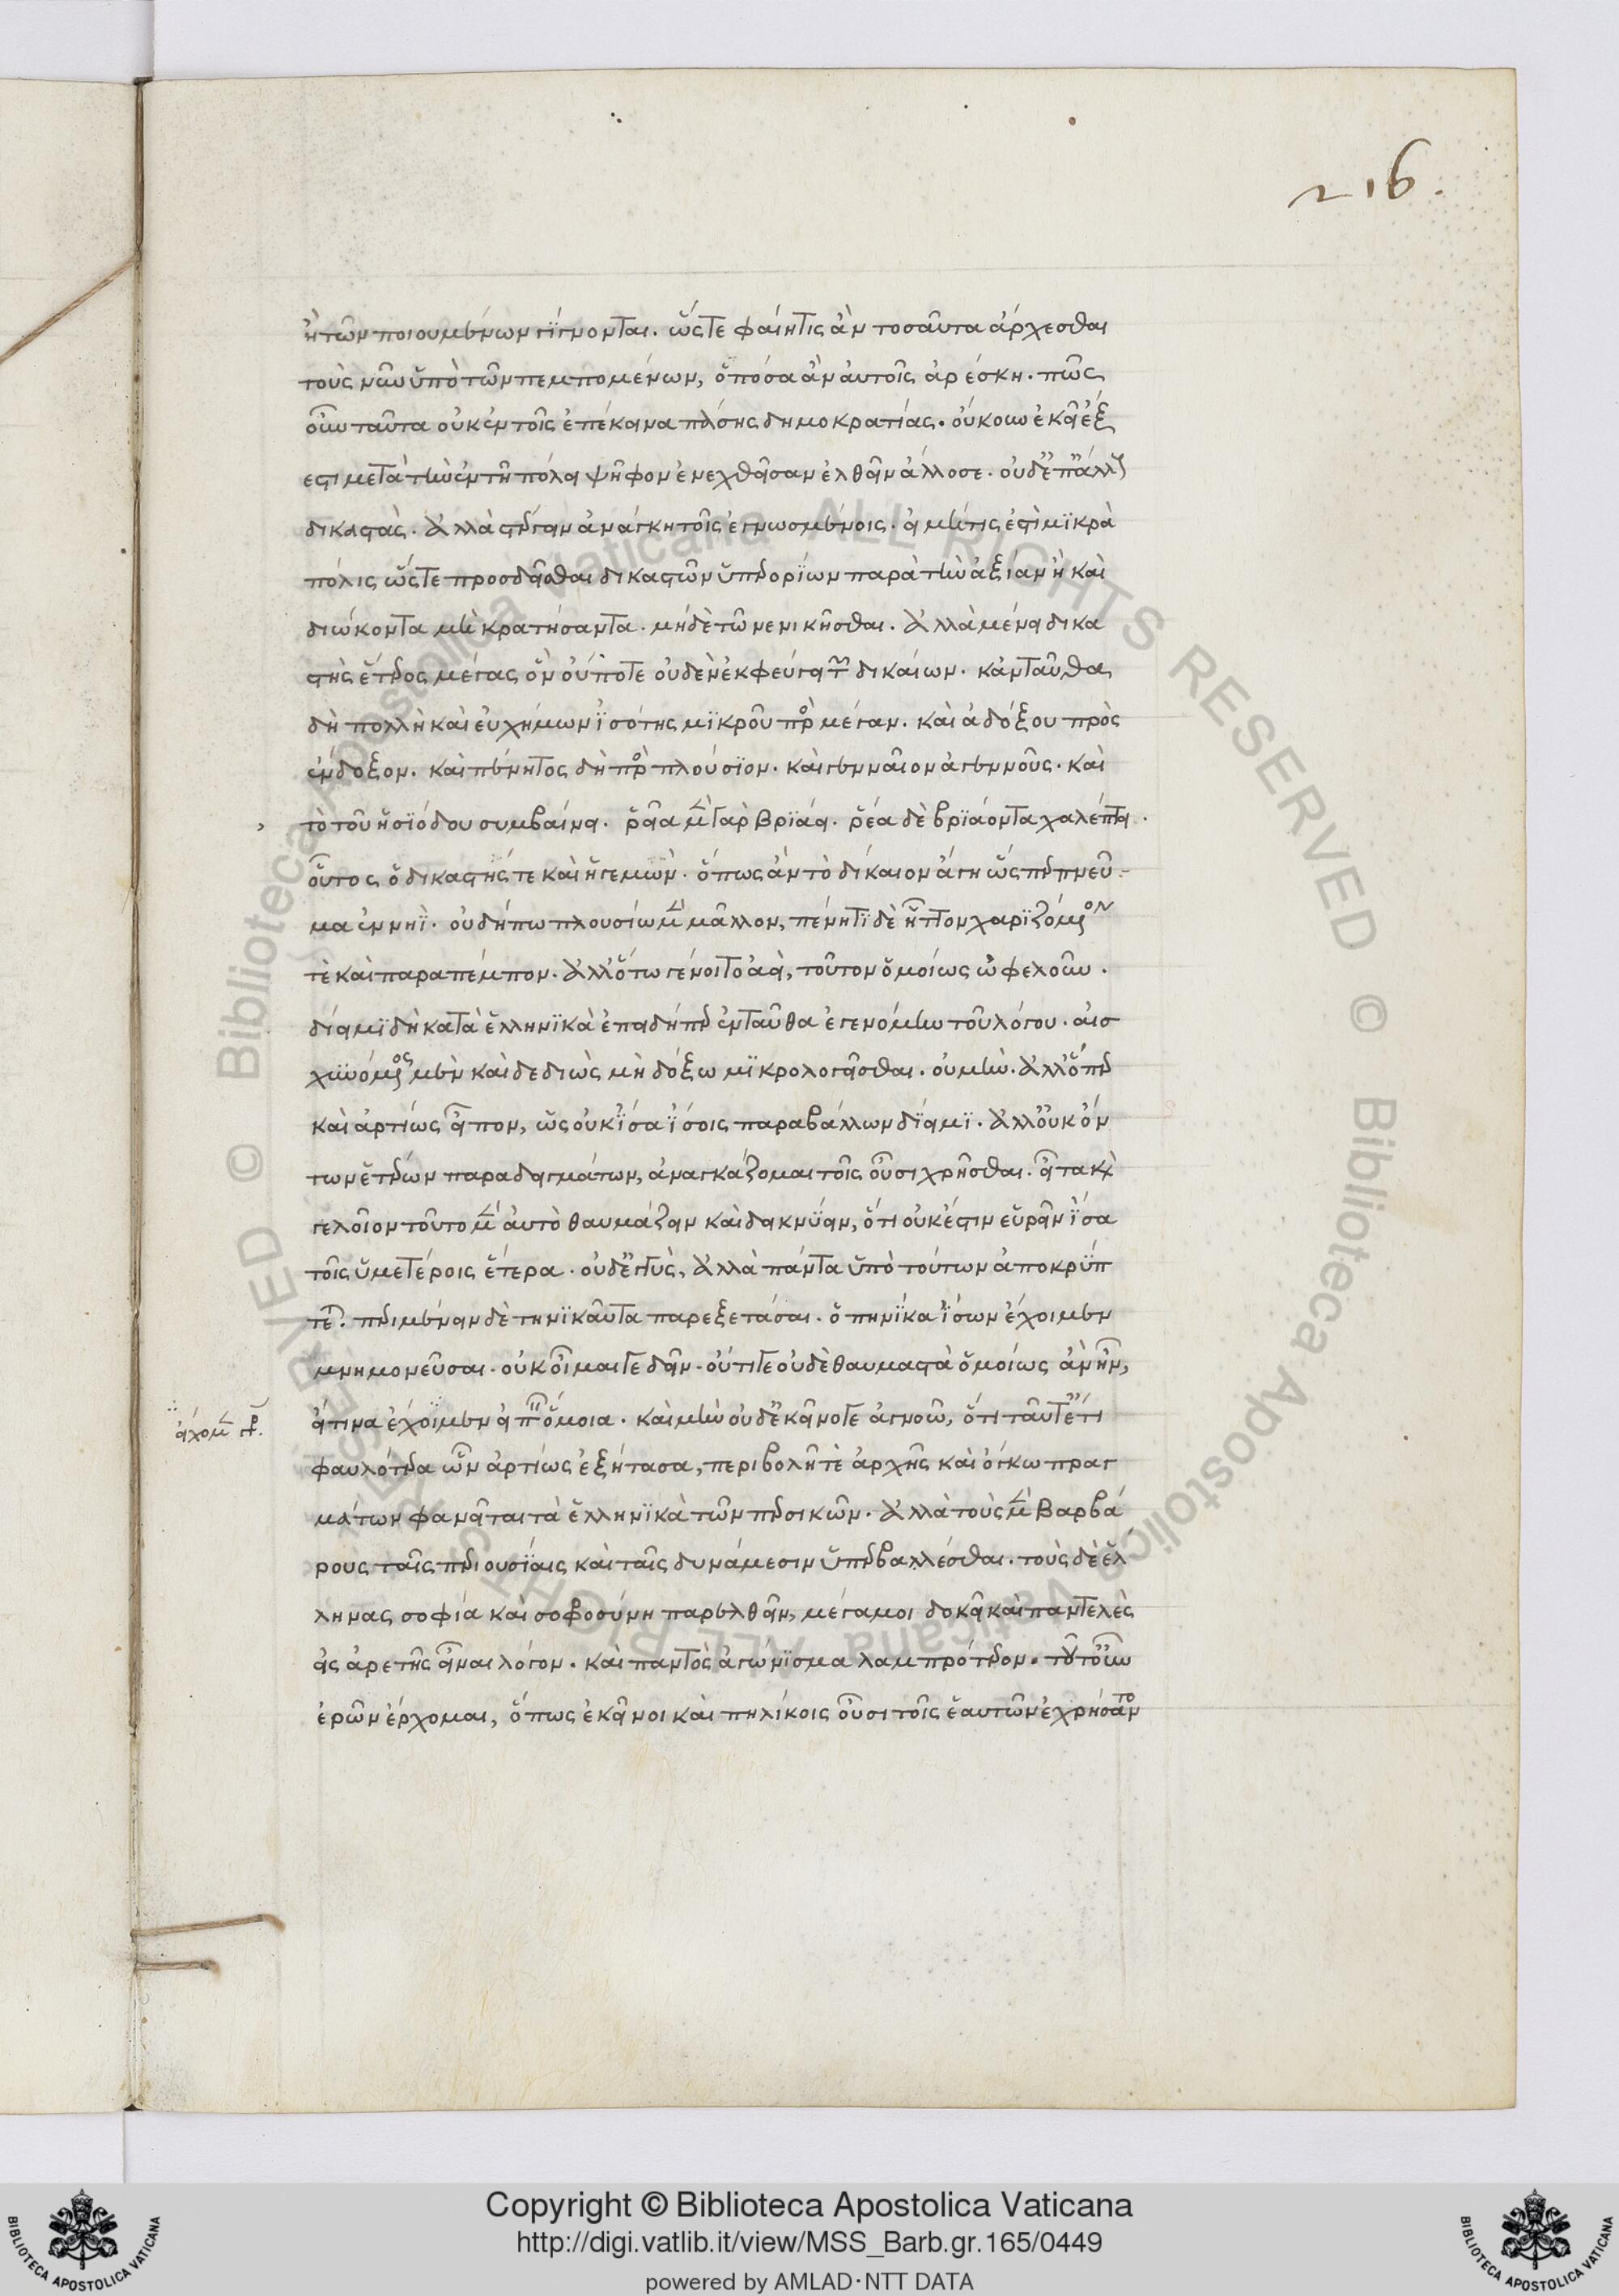 216.
ἢ τῶν ποιουμένων γίγνονται. ὥστε φαίη τις ἂν τοσαῦτα ἄρχεσθαι
τοὺς νῦν ὑπὸ τῶν πεμπομένων, ὁπόσα ἂν αὐτοῖς ἀρέσκη. πῶς
οὖν ταῦτα οὐκ ἐν τοῖς ἐπέκεινα πάσης δημοκρατίας. οὔκουν ἐκεῖ ἔξ
εστι μετὰ τὴν ἐν τῆ πόλει ψῆφον ἐνεχθεῖσαν ἐλθεῖν ἄλλοσε. οὐδ' ἐπ' ἄλλους
δικαστὰς. ἀλλὰ στέργειν ἀνάγκη τοῖς ἐγνωσμένοις. εἰ μήτις ἐστὶ μικρὰ
πόλις ὥστε προσδεῖσθαι δικαστῶν ὑπερορίων παρὰ τὴν ἀξίαν ἢ καὶ
διώκοντα μὴ κρατήσαντα. μηδὲ τῶ νενικῆσθαι. ἀλλὰ μένει δικα
στὴς ἕτερος μέγας ὃν οὔποτε οὐδὲν ἐκφεύγει τῶν δικαίων. κἀνταῦθα
δὴ πολλὴ καὶ εὐσχήμων ἰσότης μικροῦ πρὸς μέγαν. καὶ ἀδόξου πρὸς
ἔνδοξον. καὶ πένητος δὴ πρὸς πλούσιον. καὶ γενναῖον ἀγεννοῦς. καὶ
τὸ τοῦ ἡσιόδου συμβαίνει. ῥεῖα μὲν γὰρ βριάει. ῥέα δὲ βριάοντα χαλέπτει.
οὗτος ὁ δικαστής τε καὶ ἡγεμὼν. ὅπως ἂν τὸ δίκαιον ἄγη ὥσπερ πνεῦ
μα ἐν νηῒ. οὐ δήπω πλουσίω μὲν μᾶλλον, πένητι δὲ ἧττον χαριζόμενον
τὲ καὶ παραπέμπον. ἀλλ' ὅτω γένοιτο ἀεὶ, τοῦτον ὁμοίως ὠφελοῦν.
δίειμι δὴ κατὰ ἑλληνικὰ ἐπειδήπερ ἐνταῦθα ἐγενόμην τοῦ λόγου. αἰσ
χυνόμενος μὲν καὶ δεδιὼς μὴ δόξω μικρολογεῖσθαι. οὐ μὴν. ἀλλ' ὅπερ
καὶ ἀρτίως εἶπον, ὡς οὐκ ἴσα ἴσοις παραβάλλων δίειμι. ἀλλ' οὐκ ὄν
των ἑτέρων παραδειγμάτων, ἀναγκάζομαι τοῖς οὖσι χρῆσθαι. εἶτα καὶ
γελοῖον τοῦτο μὲν αὐτὸ θαυμάζειν καὶ δεικνύειν, ὅτι οὐκ ἔστιν εὑρεῖν ἴσα
τοῖς ὑμετέροις ἕτερα. οὐδ' ἐγγὺς, ἀλλὰ πάντα ὑπὸ τούτων ἀποκρύπ
τεται. περιμένειν δὲ τηνικαῦτα παρεξετάσαι. ὁπηνίκα ἴσων ἔχοιμεν
μνημονεῦσαι. οὐκ οἶμαί γε δεῖν. οὔτι γε οὐδὲ θαυμαστὰ ὁμοίως ἂν ἦν,
εἴτινα ἔχοιμεν εἰπεῖν ὅμοια. καὶ μὴν οὐδ' ἐκεῖνό γε ἀγνοῶ, ὅτι ταῦτ' ἔτι
εἴχομεν γρ.
φαυλότερα ὧν ἀρτίως ἐξήτασα, περιβολῆ τὲ ἀρχῆς καὶ ὄγκω πραγ
μάτων φανεῖται τὰ ἑλληνικὰ τῶν περσικῶν. ἀλλὰ τοὺς μὲν βαρβά
ρους ταῖς περιουσίαις καὶ ταῖς δυνάμεσιν ὑπερβαλλέσθαι. τοὺς δὲ ἕλ
ληνας σοφία καὶ σοφροσύνη παρελθεῖν, μέγα μοι δοκεῖ καὶ παντελὲς
εἰς ἀρετῆς εἶναι λόγον. καὶ παντὸς ἀγώνισμα λαμπρότερον. τοῦτ' οὖν
ἐρῶν ἔρχομαι, ὅπως ἐκεῖνοι καὶ πηλίκοις οὖσι τοῖς ἑαυτῶν ἐχρήσαντο
Copyright © Biblioteca Apostolica Vaticana
http://digi.vatlib.it/view/MSS_Barb.gr.165/0449
powered by AMLAD·NTT DATA